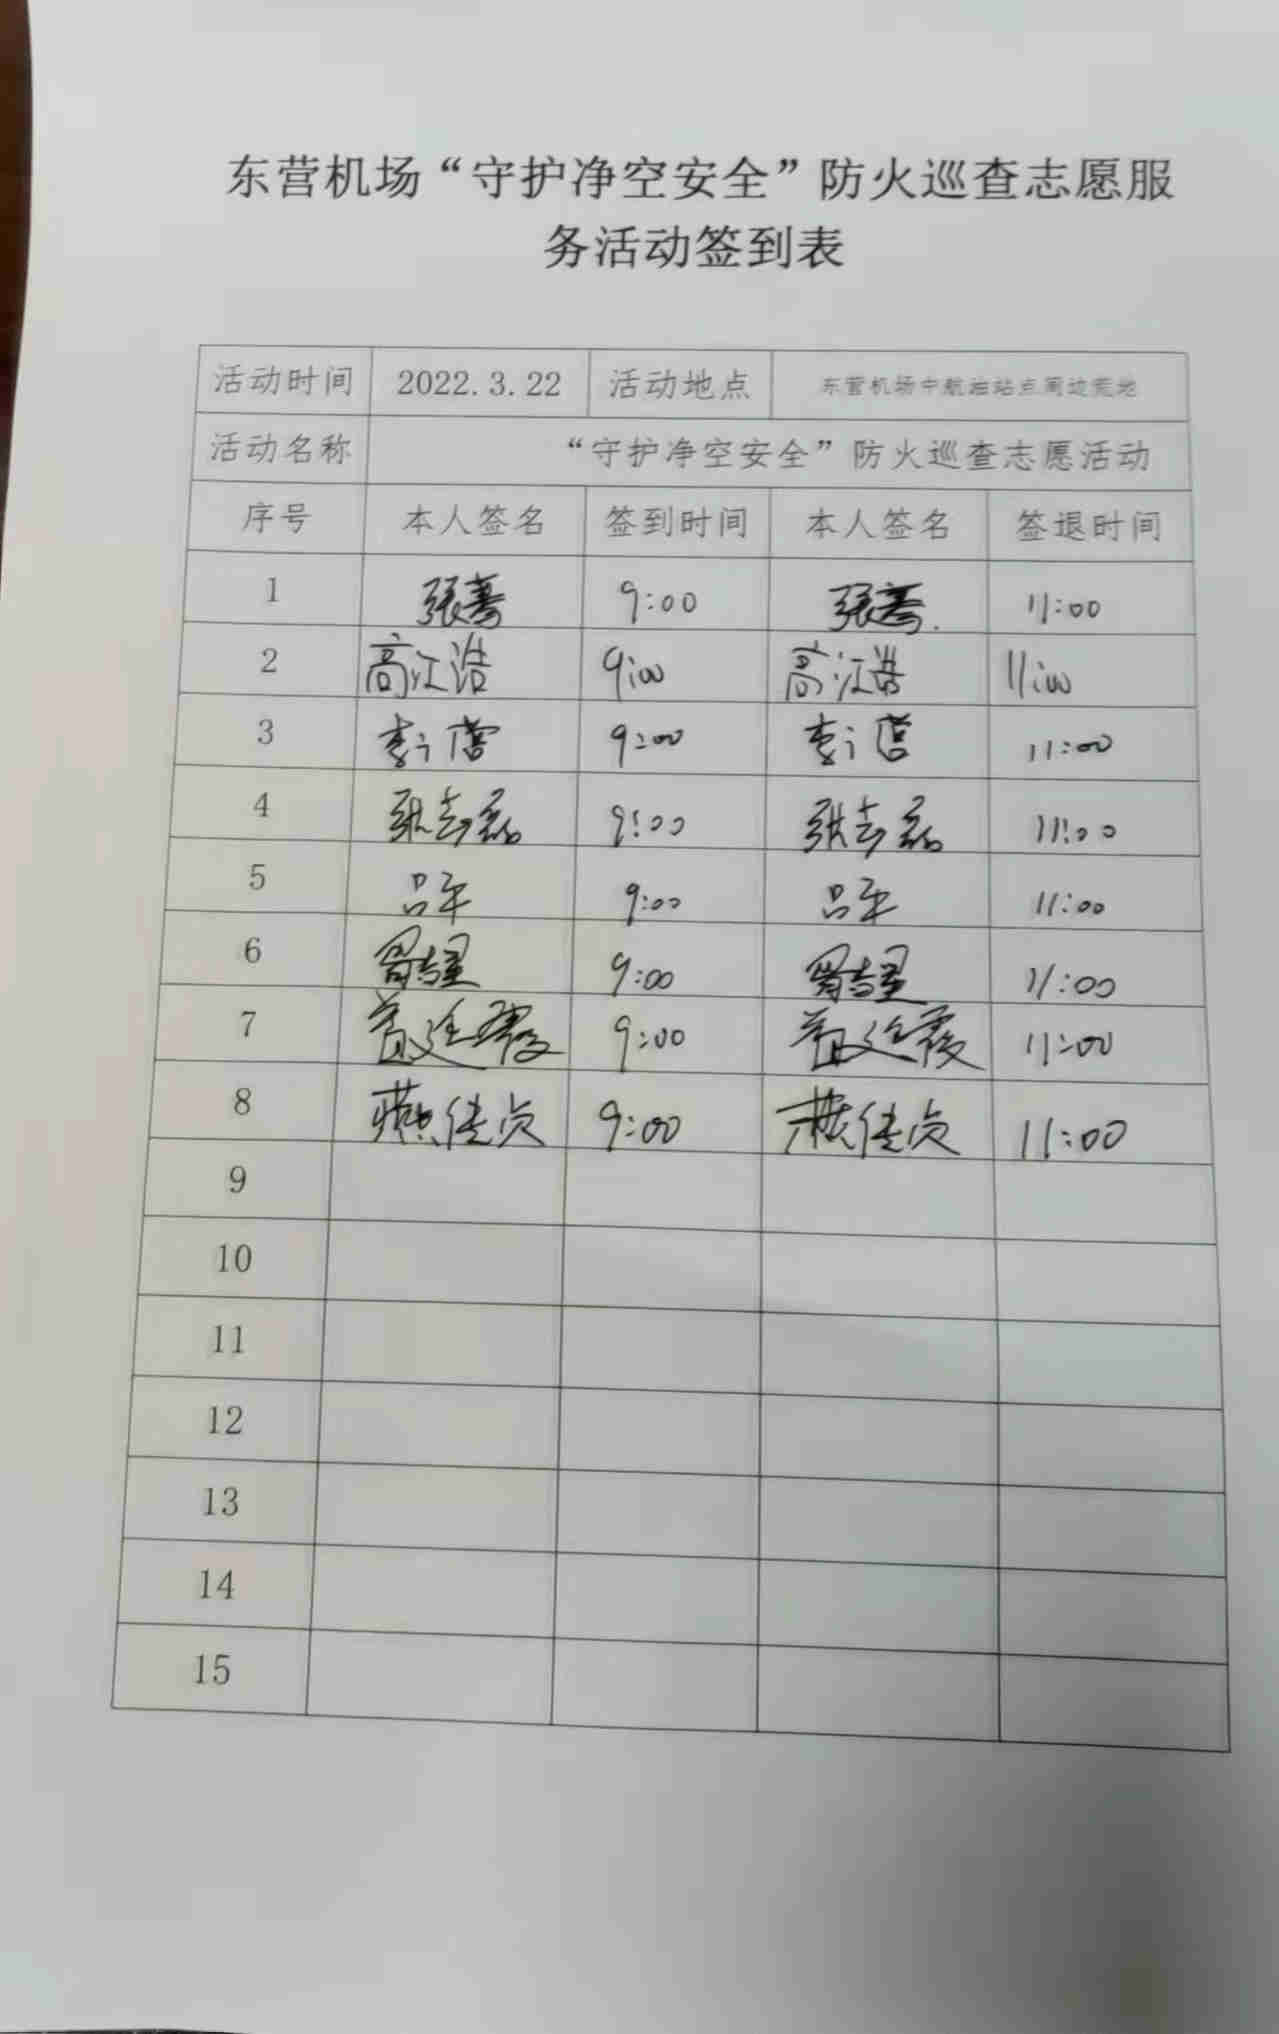 东营机场“守护净空安全”防火巡查志愿服
务活动签到表
活动时间 2022.3.22 活动地点 东营机场中航油站点周边荒地
活动名称 “守护净空安全”防火巡查志愿活动
序号 本人签名 签到时间 本人签名 签退时间
1 9:00 11:00
2 高江浩 9:00 高江浩 11:00
3 9:00 11:00
4 张志磊 9:00 张志磊 11:00
5 吕平 9:00 吕平 11:00
6 9:00 11:00
7 9:00 11:00
8 燕佳贞 9:00 燕佳贞 11:00
9
10
11
12
13
14
15